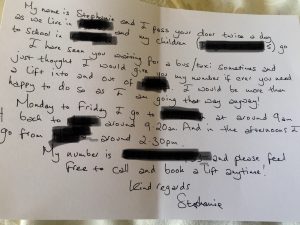 My name is Stephanie and I pass your door twice a day
as we live in and my children go
to school in
I have seen you waiting for a bus/taxi sometimes and
just thought I would give you my number if ever you need
a lift into and out of I would be more than
happy to do so as I am going that way anyway!
Monday to Friday I go to at around 9am
back to around 9.20am. And in the afternoons I
go from around 2-30pm.
My number is and please feel
free to call and book a lift anytime!
Kind regards
Stephanie